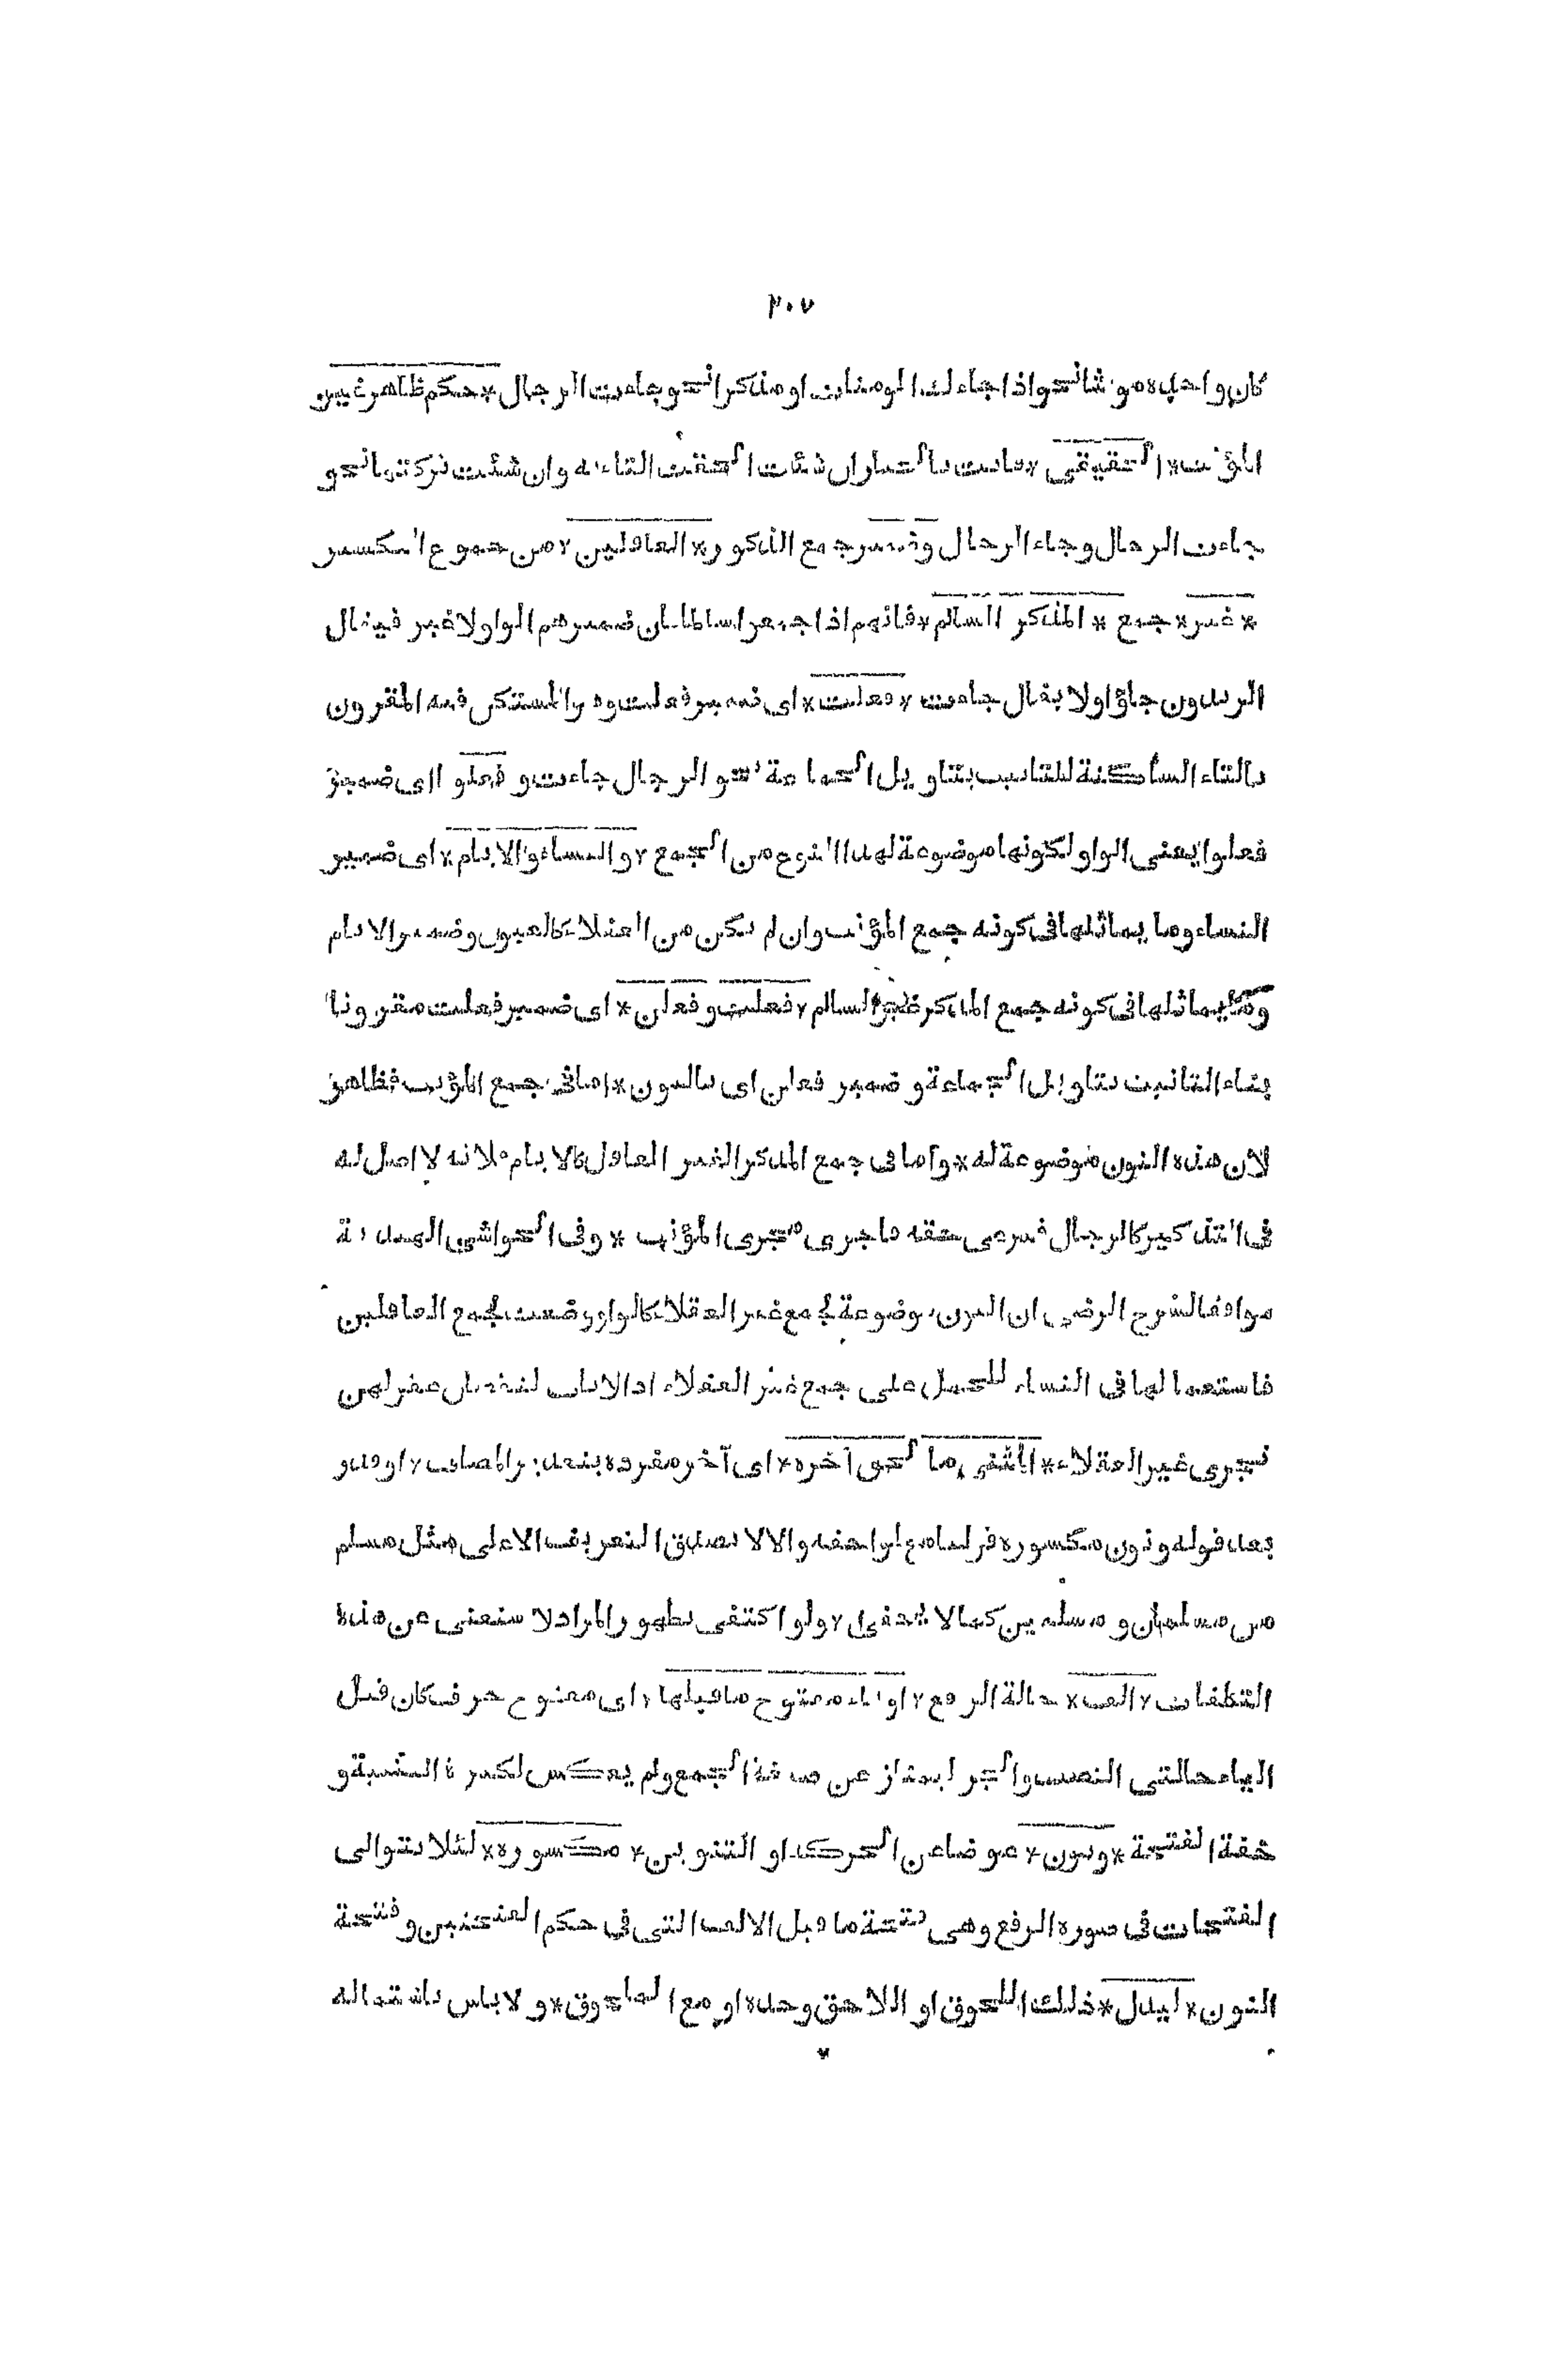 ٢٠٧
كان واحده مؤنثا نحو اذا جاءك المؤمنات او مذكرا نحو جاءت الرجال * حكم ظاهر غير
المؤنث * الحقيقى * فانت بالخيار ان شئت الحقت التاء به وان شئت تركتها نحو
جاءت الرجال وجاء الرجال وضمير جمع الذكور * العاقلين * من جموع التكسير
* غير * جمع * المذكر السالم * فانهم اذا جمعوا سالما كان ضميرهم الواو لا غير فيقال
الزيدون جاؤا ولا يقال جاءت * فعلت * اى ضمير فعلت وهو المستكن فيه المقرون
بالتاء الساكنة للتانيث بتاويل الجماعة نحو الرجال جاءت و فعلوا اى ضمير
فعلوا يعنى الواو لكونها موضوعة لهذا النوع من الجمع * والنساء والايام * اى ضمير
النساء وما يماثلها فى كونه جمع المؤنث وان لم يكن من العقلاء كالعيون وضمير الايام
وما يماثلها فى كونه جمع المذكر غير السالم * فعلت و فعلن * اى ضمير فعلت مقرونا
بتاء التانيث بتاويل الجماعة و ضمير فعلن اى بالنون * اما فى جمع المؤنث فظاهر
لان هذه النون موضوعة له * واما فى جمع المذكر الغير العاقل كالايام فلانه لا اصل له
فى التذكير كالرجال فيرعى حقه فاجرى مجرى المؤنث * وفى الحواشى الهندية
موافقا لشرح الرضى ان النون موضوعة لجمع غير العقلاء كالواو وضعت لجمع العاقلين
فاستعمالها فى النساء للحمل على جمع غير العقلاء اذ الاناث لنقصان عقولهن
تجرى غير العقلاء * المثنى ما لحق آخره * اى آخر مفرده بتقدير المضاف * او
بعد قوله ونون مكسورة قولنا مع لواحقه والا لا يصدق التعريف الا على مثل مسلم
من مسلمان و مسلمين كما لا يخفى * ولو اكتفى بظهور المراد لاستغنى عن هذه
التكلفات * الف * حالة الرفع * او ياء مفتوح ما قبلها * اى مفتوح حرف كان قبل
الياء حالتى النصب والجر ليمتاز عن صيغة الجمع ولم يعكس لكثرة التثنية و
خفة الفتحة * ونون * عوضا عن الحركة او التنوين * مكسورة * لئلا يتوالى
الفتحات فى صورة الرفع وهى فتحة ما قبل الالف التى فى حكم الفتحتين و فتحة
النون * ليدل * ذلك اللحوق او اللاحق وحده او مع الملحوق * و لا باس باشتماله